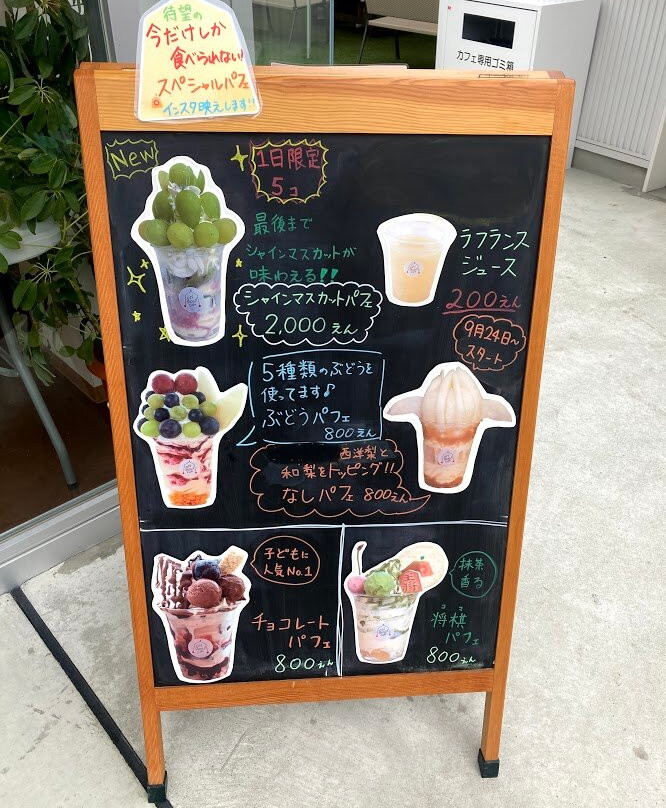 待望の
今だけしか
食べられない!
スペシャルパフェ
インスタ映えします!!
カフェ専用ゴミ箱
New
1日限定
5コ
最後まで
シャインマスカットが
味わえる!!
シャインマスカットパフェ
2,000えん
ラフランス
ジュース
200えん
9月24日~
スタート
5種類のぶどうを
使ってます♪
ぶどうパフェ
800えん
西洋梨と
和梨をトッピング!!
なしパフェ 800えん
子どもに
人気No.1
チョコレート
パフェ
800えん
抹茶
香る
将棋
パフェ
800えん